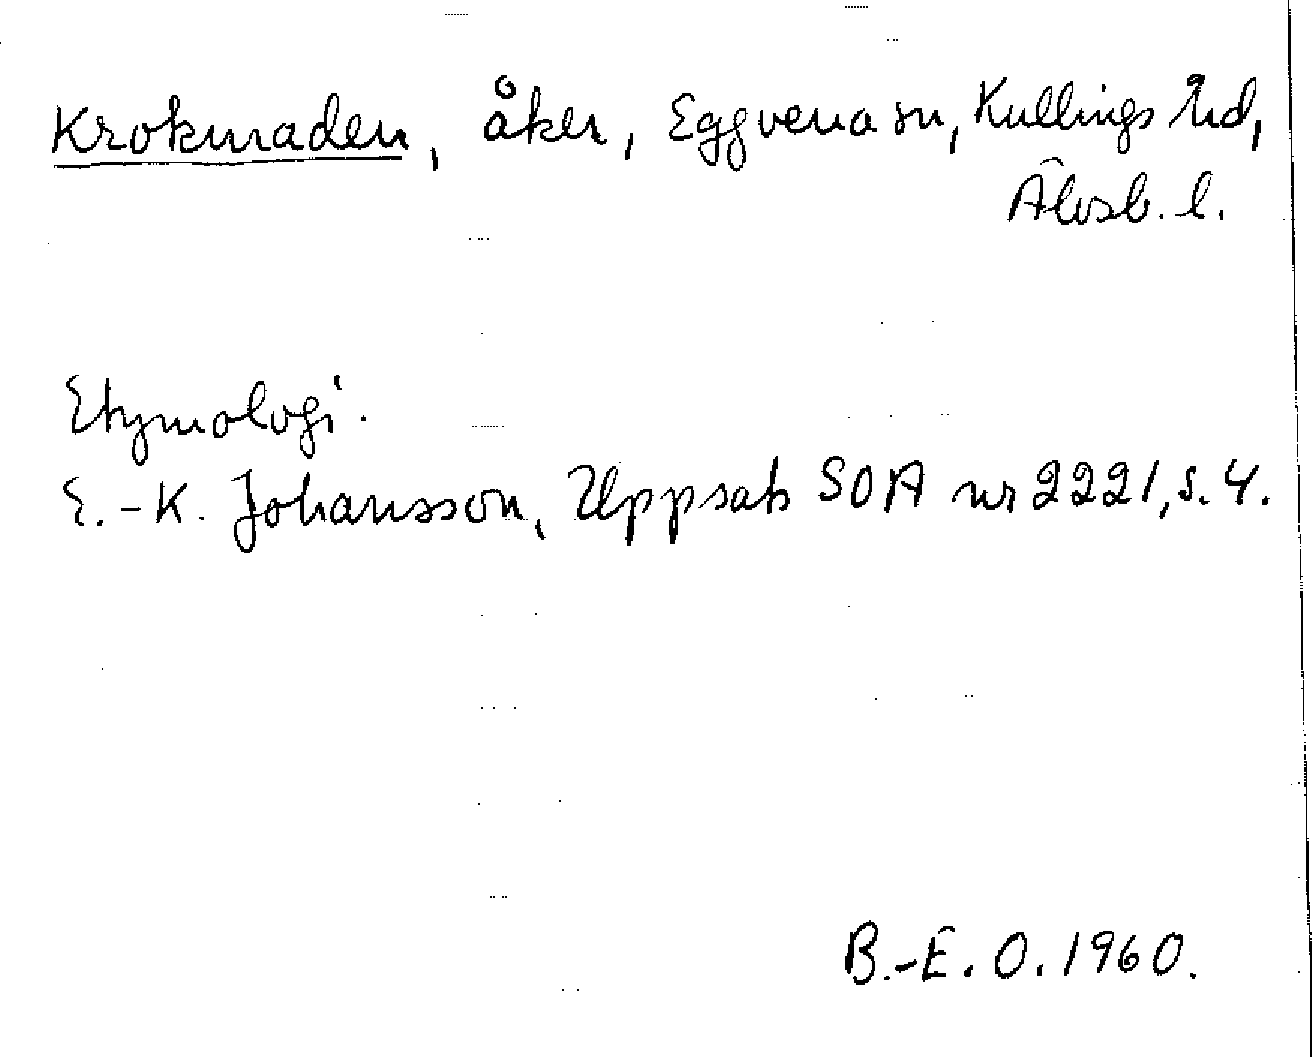 Krokmaden, åker, Eggvena sn, Kullings hd,
Älvsb. l.
Etymologi.
E.-K. Johansson, Uppsats SOA nr 2221, s. 4.
B.-E. O. 1960.